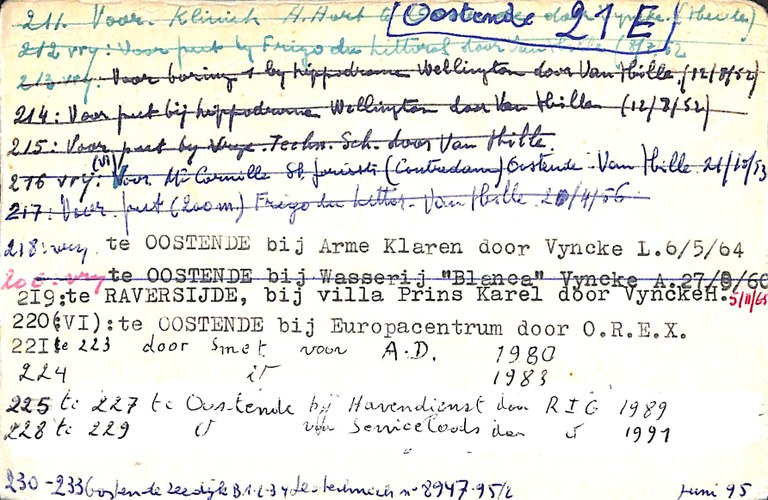 Oostende 21 E
211. Voor. Kliniek H. Hart te door Vyncke.
212 vry: Voor put by Frigo du littoral door Van Hille (8/7/52
213 vry: Voor boring 1 by hippodrome Wellington door Van Hille, (12/8/52)
214: Voor put bij hippodrome Wellington door Van Hille (12/8/52)
215: Voor put by Techn. Sch. door Van Hille.
216 vry: (VI) Voor Mr Cornille St. (Contredam) Oostende. Van Hille. 21/10/53
217: Voor put (200m) Frigo du littor. Van Hille 20/4/56
218: vry te OOSTENDE bij Arme Klaren door Vyncke L.6/5/64
vry te OOSTENDE bij Wasserij "Blanca" Vyncke A.27/9/60
219:te RAVERSIJDE, bij villa Prins Karel door VynckeH. 5/11/65
220(VI):te OOSTENDE bij Europacentrum door O.R.E.X.
221 te 223 door Smet voor A.D. 1980
224 id 1983
225 te 227 te Oostende bij Havendienst door RIG 1989
228 te 229 id Serviceloods door id 1991
230-233 Oostende zeedijk B.1-2-3-4 Geotechnich nr 8947-95/2 juni 95